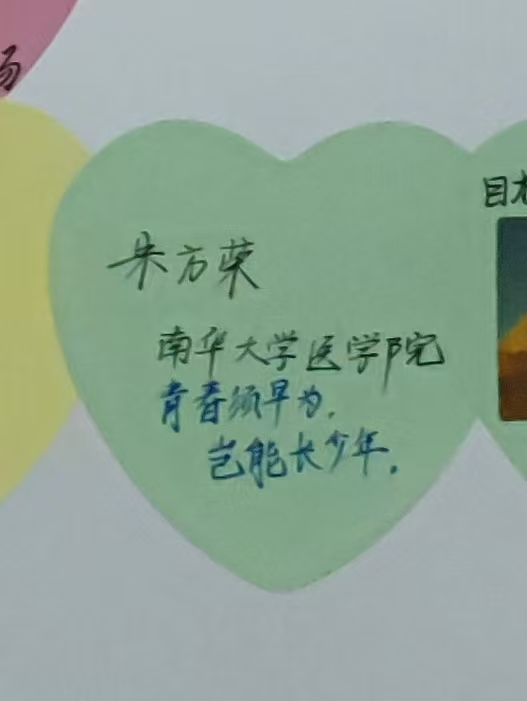 朱方荣
南华大学医学院
青春须早为,
岂能长少年.
目标